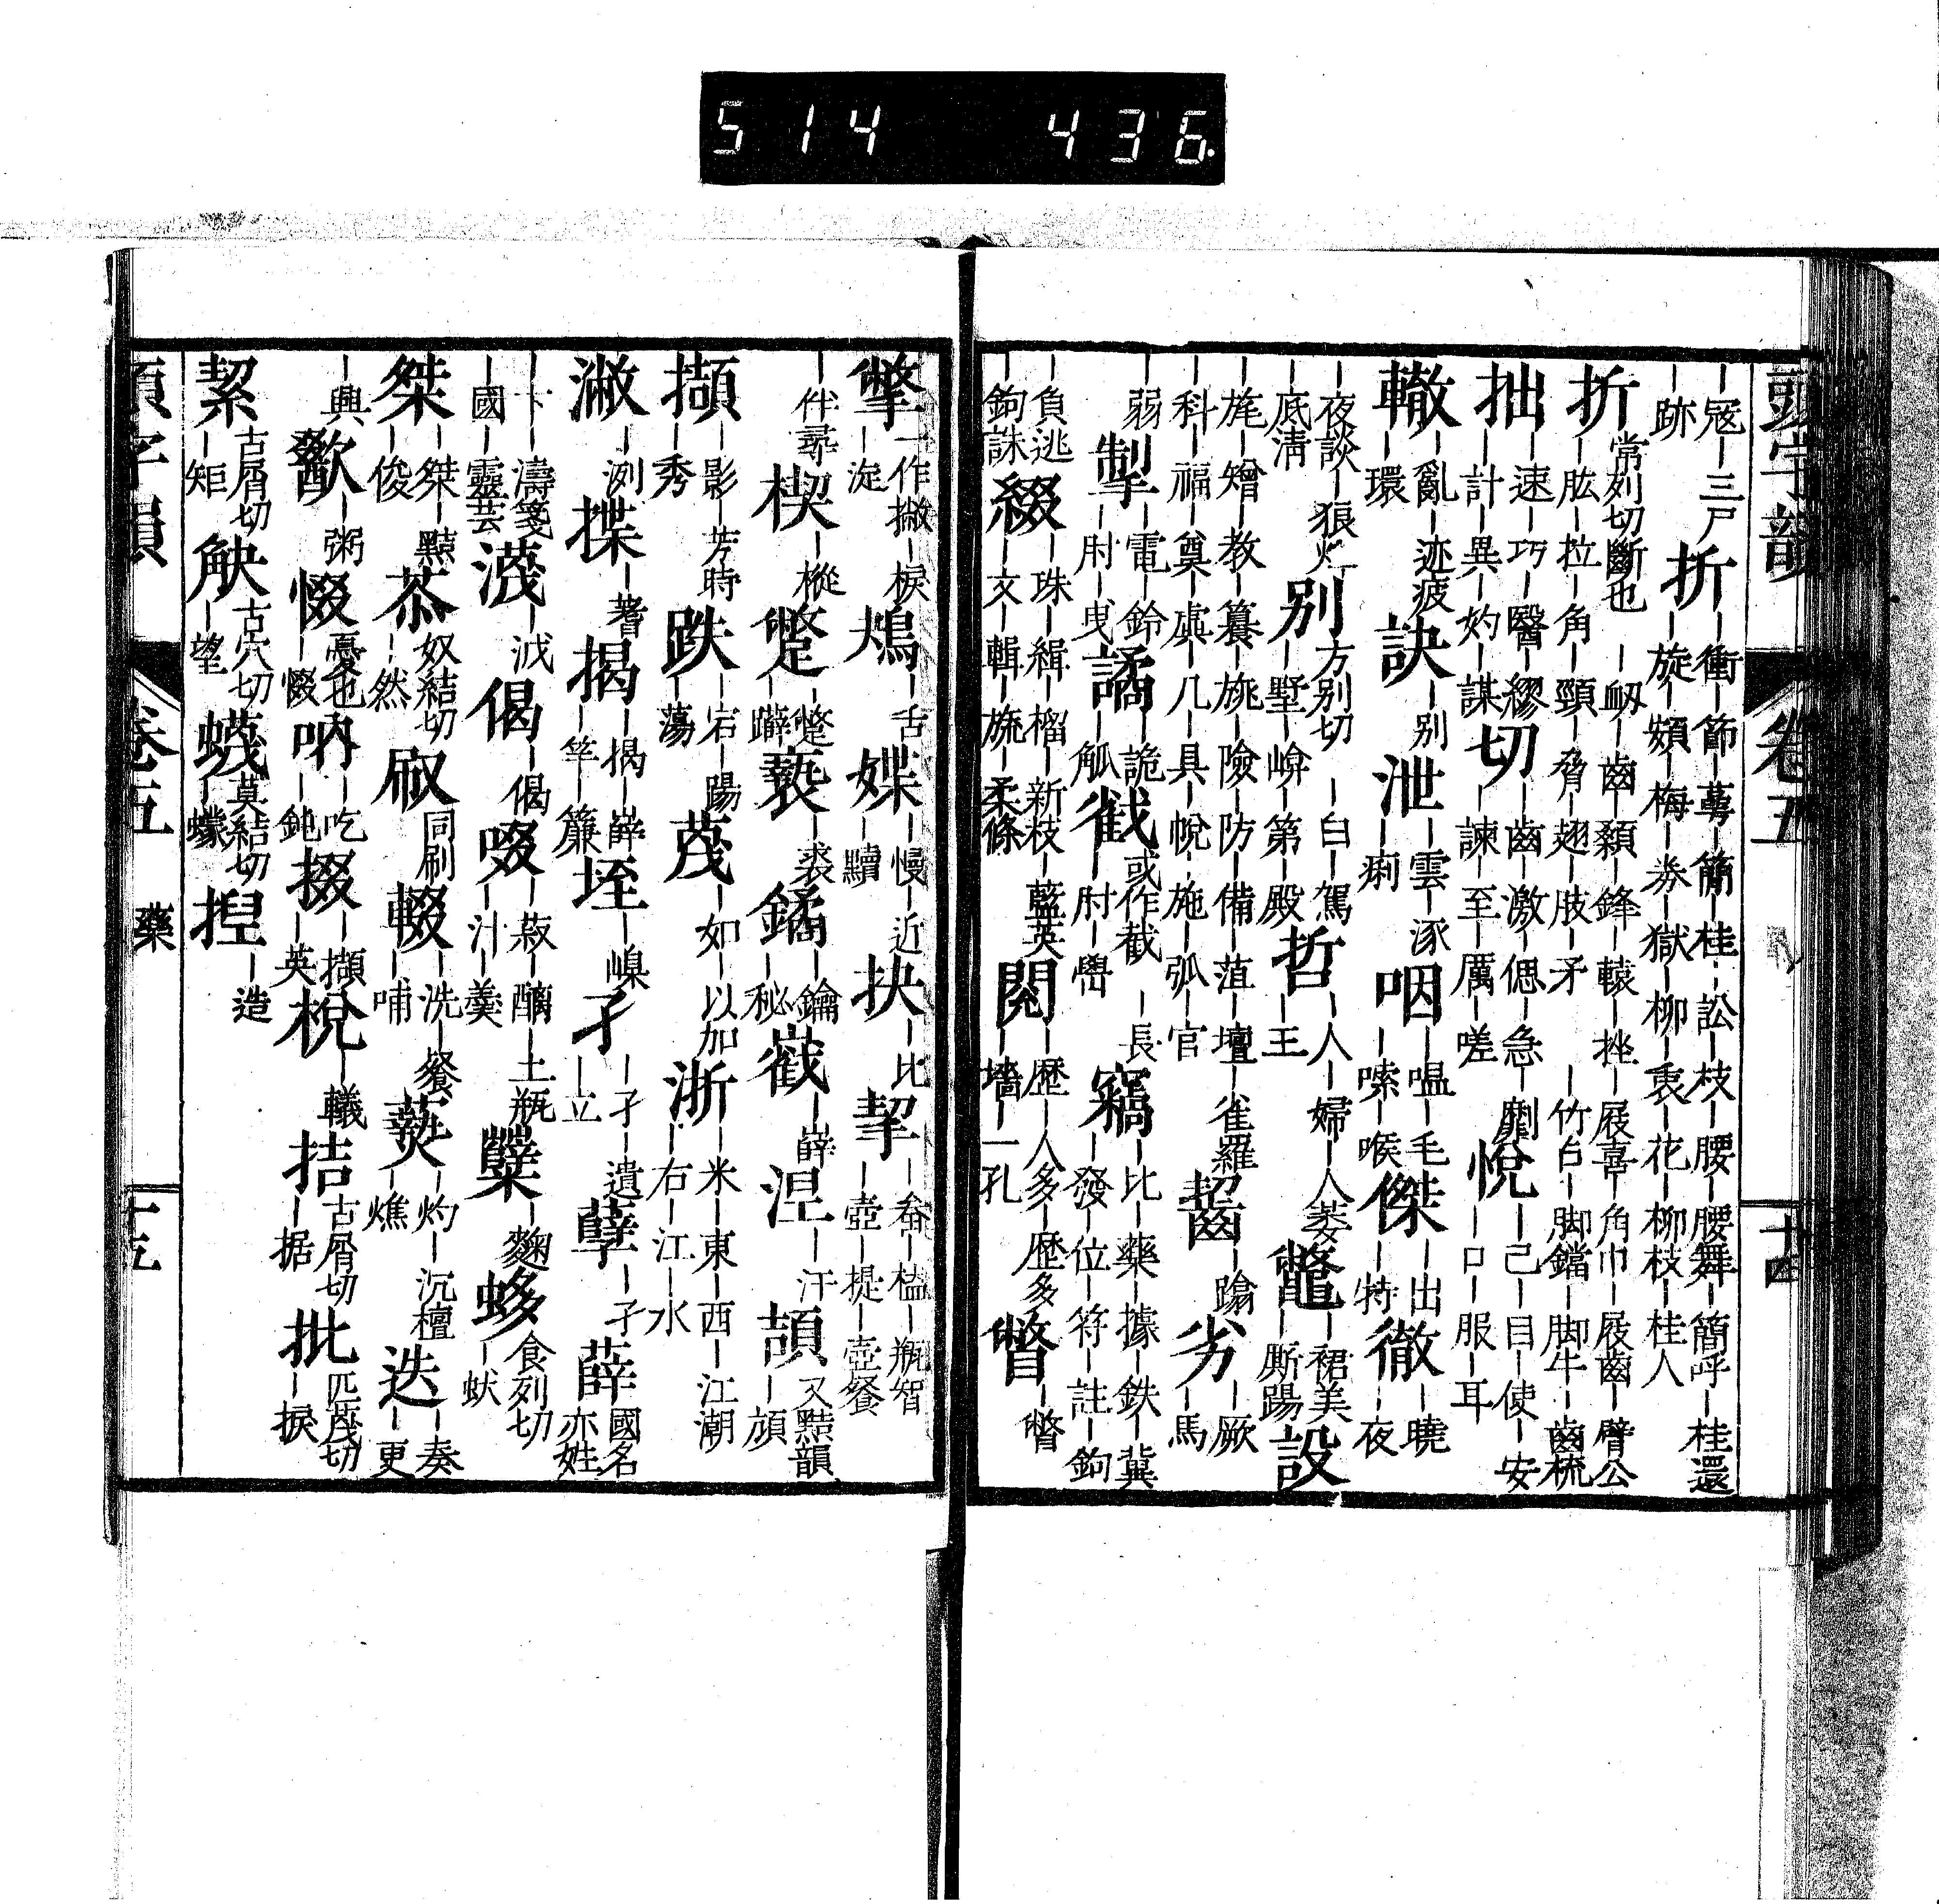 514 436
頭字韻 卷五 十四
｜寇｜三尸
｜跡
折｜衝｜節｜蕚｜簡｜桂｜訟｜枝｜腰｜腰舞｜簡呼｜桂還
｜旋｜頞｜梅｜券｜獄｜柳｜衷｜花｜柳枝｜桂人
折常列切斷也｜衂｜齒｜纇｜鋒｜轅｜挫｜屐喜｜角巾｜屐齒｜臂公
｜肱｜拉｜角｜頸｜脅｜翅｜肢｜矛｜竹｜脚鐺｜脚牛｜齒梳
拙｜速｜巧｜醫｜繆
｜計｜異｜妁｜謀
切｜齒｜激｜偲｜急｜劘
｜諫｜至｜厲｜嗟
悅｜己｜目｜使｜安
｜口｜服｜耳
轍｜亂｜迹疲
｜環
訣｜別
泄｜雲｜涿
｜痢
咽｜嗢｜毛
｜嗉｜喉
傑｜出
｜特
徹｜曉
｜夜
｜夜談｜狼
｜底清
別方別切｜白｜駕
｜墅｜㟁｜第｜殿
哲｜人｜婦｜人萎
｜王
鼈｜裙美
｜厮踢
設
｜旄｜矰｜教｜簨｜旐｜險｜防｜備｜菹｜壇｜雀羅
｜科｜福｜奠｜虡｜几｜具｜帨｜施｜弧｜官
齧
劣｜厥
｜馬
｜弱
掣｜電｜鈴
｜肘｜曳
譎｜詭
｜觚
截或作截｜長
｜肘｜轡
竊｜比｜藥｜據｜鉄｜冀
｜發｜位｜符｜註｜鉤
｜負逃
｜鉤誅
綴｜珠｜緝｜榴｜新枝｜藍英
｜文｜輯｜旒｜柔條
閱｜歷｜人多｜歷多
｜墻｜一孔
瞥｜瞥
撆｜一作撇｜棙
｜淀
鴂｜舌
媟｜慢｜近
｜黷
抉｜比
挈｜畚｜榼｜瓶智
｜壺｜提｜壺餐
｜伴尋
楔｜樅
蹩｜蹩
｜躃
褻｜裘
鐍｜鑰
｜秘
巀｜嶭
涅｜汗
頡又黠韻
｜頏
擷｜影｜芳時
｜秀
跌｜宕｜陽
｜蕩
蔑｜如｜以加
浙｜米｜東｜西｜江潮
｜右｜江｜水
潎｜洌
揲｜蓍
揭｜揭｜嶭
｜竿｜簾
垤｜嵲
孑｜孑｜遺
｜立
孽｜孑
薛國名亦姓
｜卞｜濤箋
｜國｜靈芸
瀎｜泧
偈｜偈
啜｜菽｜醨｜土瓶
｜汁｜羹
糱｜麴
蛥食列切
｜蚗
桀｜桀｜黠
｜俊
苶奴結切
｜然
㕞同刷
輟｜洗｜餐
｜哺
爇｜灼｜沉檀
｜燋
迭｜奏
｜更
｜興
歠｜粥
惙憂也
｜惙
吶｜吃
｜鈍
掇｜擷
｜英
梲｜轙
拮古屑切
｜据
批匹蔑切
｜捩
絜古屑切
｜矩
觖古穴切
｜望
蠛莫結切
｜蠓
揑｜造
頭字韻 卷五 藥 十五